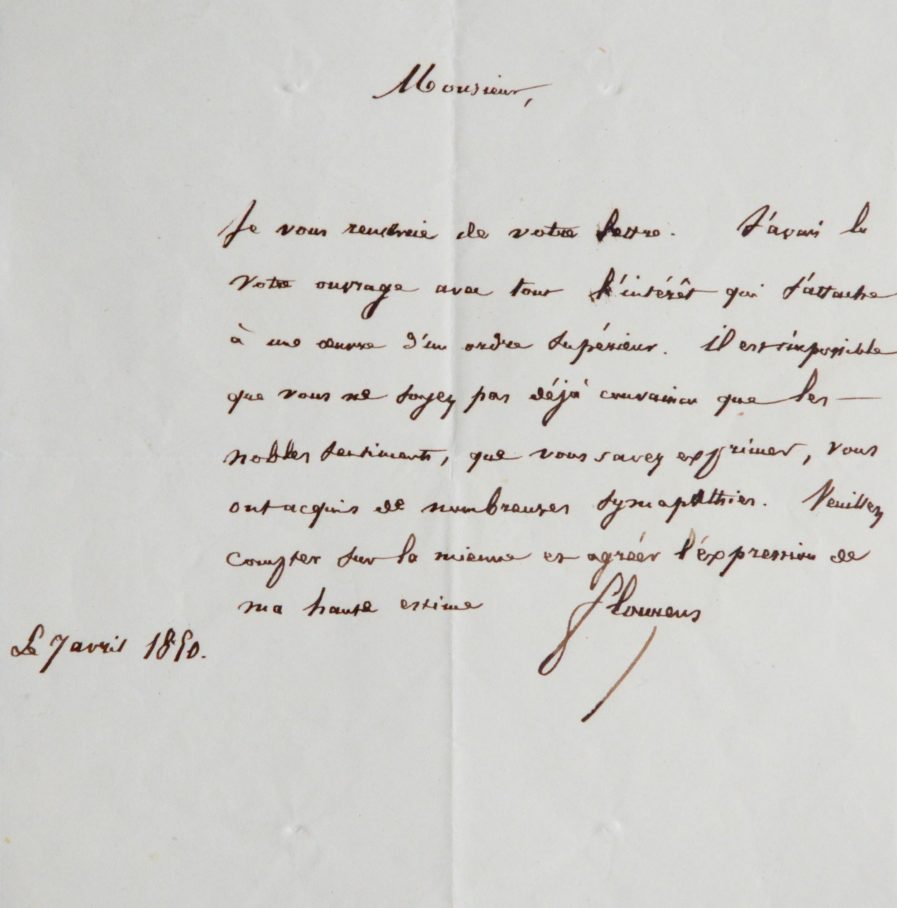 Monsieur,
Je vous remercie de votre lettre. J'avais lu
votre ouvrage avec tout l'intérêt qui s'attache
à une œuvre d'un ordre supérieur. il est impossible
que vous ne soyez pas déjà convaincu que les —
nobles sentiments, que vous savez exprimer, vous
ont acquis de nombreuses sympathies. Veuillez
compter sur la mienne et agréer l'expression de
ma haute estime
Flourens
Le 7 avril 1850.